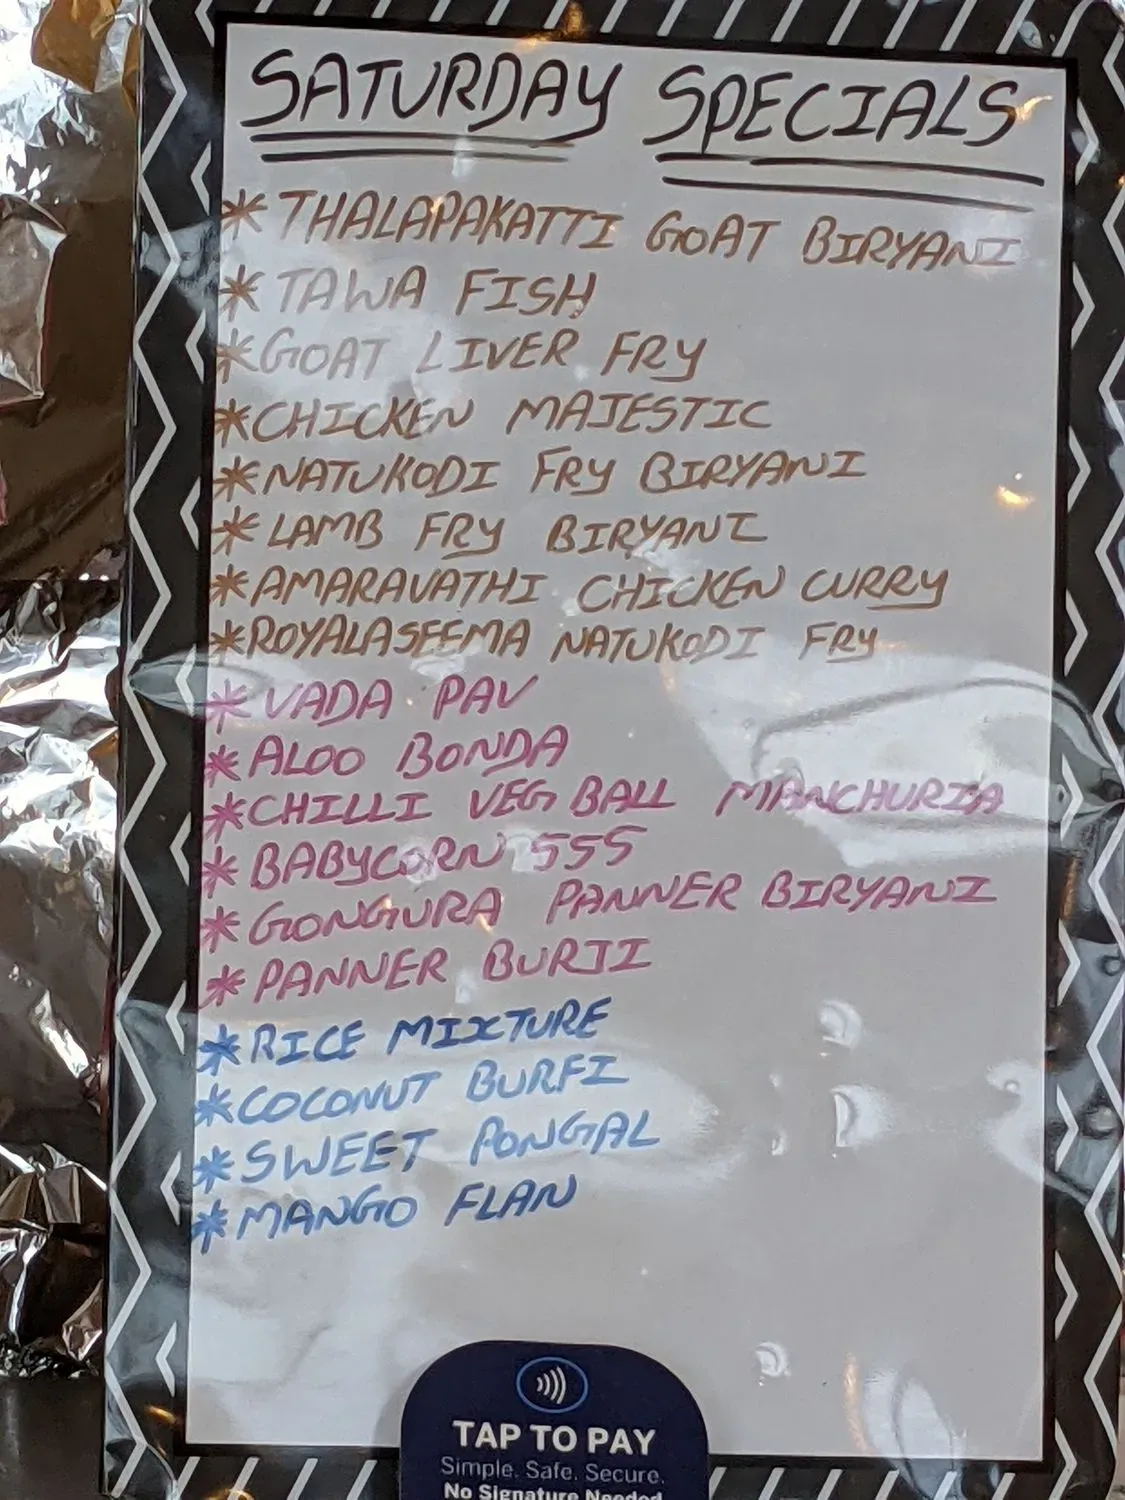 SATURDAY SPECIALS
* THALAPAKATTI GOAT BIRYANI
* TAWA FISH
* GOAT LIVER FRY
* CHICKEN MAJESTIC
* NATUKODI FRY BIRYANI
* LAMB FRY BIRYANI
* AMARAVATHI CHICKEN CURRY
* ROYALASEEMA NATUKODI FRY
* VADA PAV
* ALOO BONDA
* CHILLI VEG BALL MANCHURIA
* BABYCORN 555
* GONGURA PANNER BIRYANI
* PANNER BURJI
* RICE MIXTURE
* COCONUT BURFI
* SWEET PONGAL
* MANGO FLAN
TAP TO PAY
Simple. Safe. Secure.
No Signature Needed